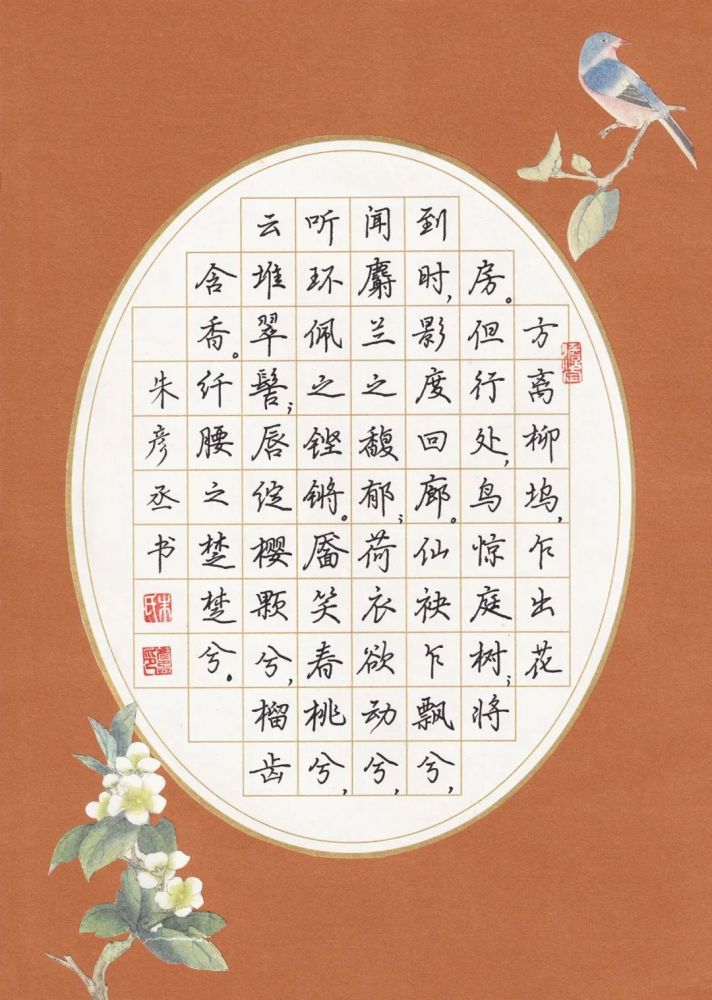 方离柳坞，乍出花
房。但行处，鸟惊庭树；将
到时，影度回廊。仙袂乍飘兮，
闻麝兰之馥郁；荷衣欲动兮，
听环佩之铿锵。靥笑春桃兮，
云堆翠髻；唇绽樱颗兮，榴齿
含香。纤腰之楚楚兮。
朱彦丞书
朱氏